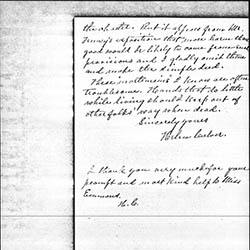 the charter. But it appears from Mr.
exposition that more harm than
good would be likely to come from such
provisions and I gladly omit them
and make the simpler deed.
These are often
troublesome. Hands that do little
while living should keep out of
other folks' way when dead.
Sincerely yours
Helen
I thank you very much for your
prompt and most kind help to Miss
H.C.